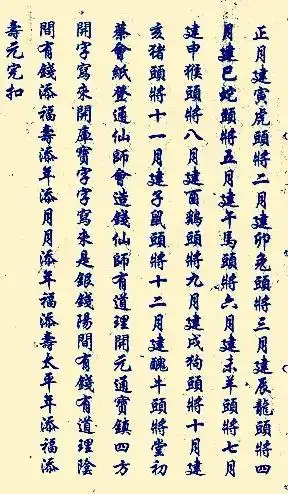 正月建寅虎頭將二月建卯兔頭將三月建辰龍頭將四
月建巳蛇頭將五月建午馬頭將六月建未羊頭將七月
建申猴頭將八月建酉鷄頭將九月建戌狗頭將十月建
亥猪頭將十一月建子鼠頭將十二月建醜牛頭將堂初
蔡會紙登通仙師會造錢仙師有道理開元通寶鎮四方
開字寫來開庫寶字字寫來是銀錢陽間有錢有道理陰
間有錢添福壽添年添月月添年福添壽太平年添福添
壽元完扣